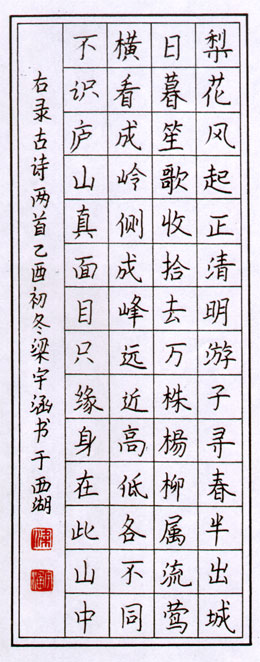 梨花风起正清明游子寻春半出城
日暮笙歌收拾去万株杨柳属流莺
横看成岭侧成峰远近高低各不同
不识庐山真面目只缘身在此山中
右录古诗两首乙酉初冬梁宇涵书于西湖